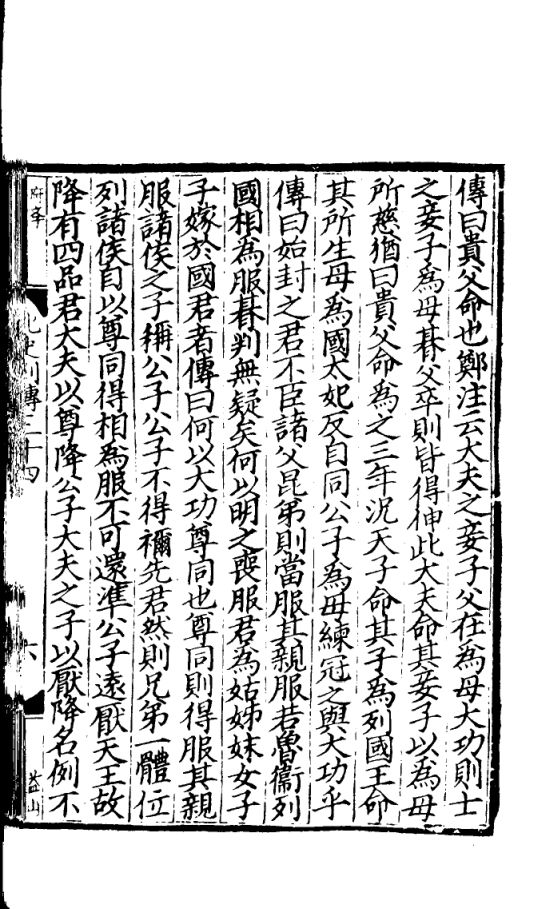 傳曰貴父命也鄭注云大夫之妾子父在為母大功則士
之妾子為母朞父卒則皆得伸此大夫命其妾子以為母
所慈猶曰貴父命為之三年況天子命其子為列國王命
其所生母為國太妃反自同公子為母練冠之與大功乎
傳曰始封之君不臣諸父昆弟則當服其親服若魯衞列
國相為服朞判無疑矣何以明之喪服君為姑姊妹女子
子嫁於國君者傳曰何以大功尊同也尊同則得服其親
服諸侯之子稱公子公子不得禰先君然則兄弟一體位
列諸侯自以尊同得相為服不可還準公子遠厭天王故
降有四品君大夫以尊降公子大夫之子以厭降名例不
列傳三十四
六
益山